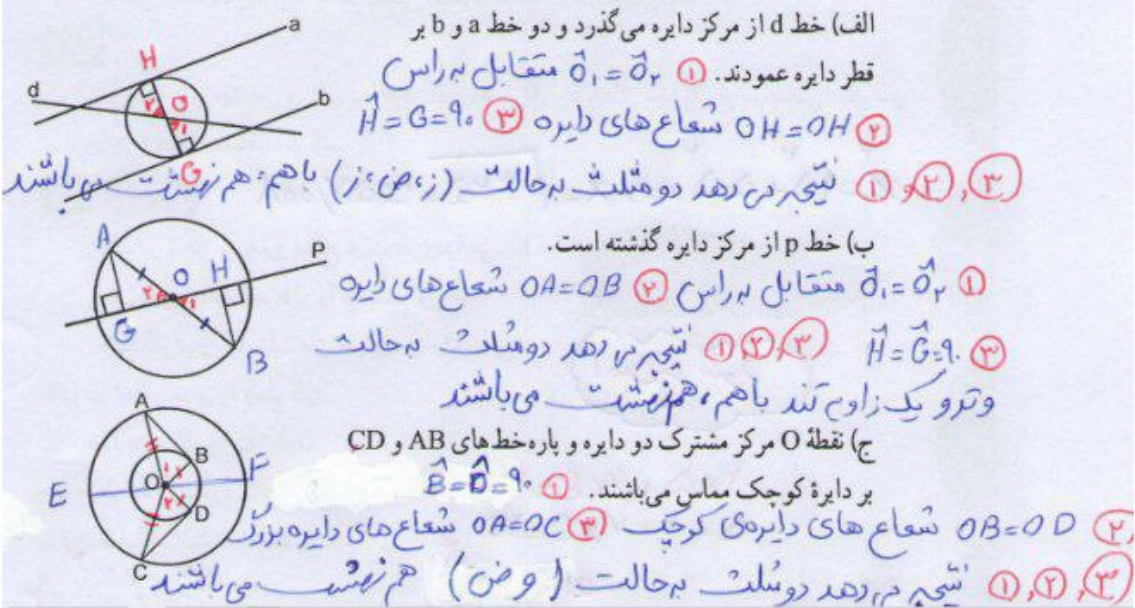 الف) خط d از مرکز دایره می‌گذرد و دو خط a و b بر
قطر دایره عمودند. ① Ô₁ = Ô₂ متقابل به راس
② OH = OH شعاع های دایره ③ Ĥ = G = ۹۰
①,②,③ نتیجه می دهد دو مثلث به حالت (ز، ض، ز) باهم، هم نهشت می باشند
a
H
d
۲ O
۱
b
G
ب) خط p از مرکز دایره گذشته است.
① Ô₁ = Ô₂ متقابل به راس ② OA = OB شعاع های دایره
③ Ĥ = Ĝ = ۹۰ ①,②,③ نتیجه می دهد دو مثلث به حالت
وتر و یک زاویه تند باهم، هم نهشت می باشند
A
P
O H
۲ ۱
G
B
ج) نقطهٔ O مرکز مشترک دو دایره و پاره‌خط‌های AB و CD
بر دایرهٔ کوچک مماس می‌باشند. ① B̂ = D̂ = ۹۰
② OB = OD شعاع های دایره‌ی کوچک ③ OA = OC شعاع های دایره بزرگ
①,②,③ نتیجه می دهد دو مثلث به حالت (و ض) هم نهشت می باشند
A
B
E O ۱ F
۲ D
C